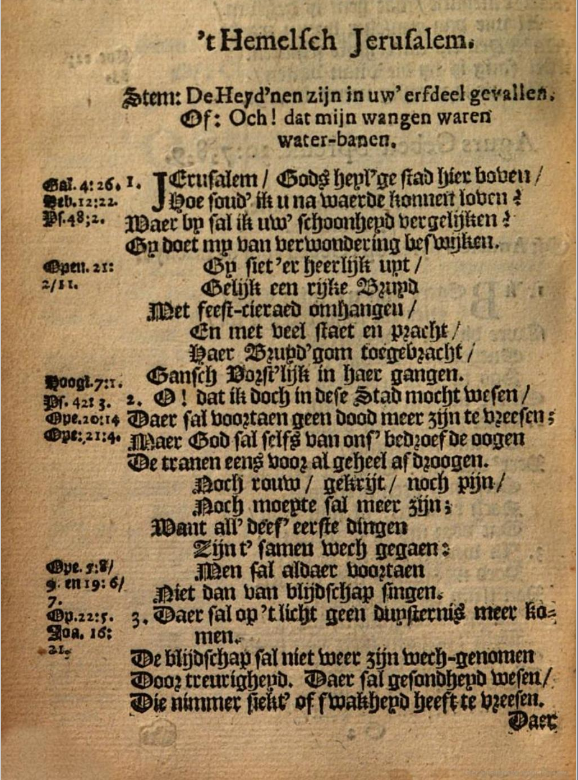 't Hemelsch Jerusalem.
Stem: De Heyd'nen zijn in uw' erfdeel gevallen.
Of: Och! dat mijn wangen waren
water-banen.
Gal. 4:26. 1. JErusalem / Gods heyl'ge stad hier boven /
Heb. 12:22. Hoe soud' ik u na waerde konnen loven?
Ps. 48;2. Waer by sal ik uw' schoonheyd vergelijken?
Gy doet my van verwondering beswijken.
Open. 21: Gy siet'er heerlijk uyt /
2/11. Gelijk een rijke Bruyd
Met feest-cieraed omhangen /
En met veel staet en pracht /
Haer Bruyd'gom toegebracht /
Hoogl. 7:1. Gansch Vorst'lijk in haer gangen.
Ps. 42:3. 2. O! dat ik doch in dese Stad mocht wesen /
Ope. 20:14 Daer sal voortaen geen dood meer zijn te vreesen;
Ope: 21:4. Maer God sal selfs van ons' bedroefde oogen
De tranen eens voor al geheel afdroogen.
Noch rouw / gekrijt / noch pijn /
Noch moeyte sal meer zijn;
Want all' dees' eerste dingen
Zijn t' samen wech gegaen:
Ope. 5:8/ Men sal aldaer voortaen
9. en 19:6/ Niet dan van blijdschap singen.
7.
Op. 22:5. 3. Daer sal op 't licht geen duysternis meer ko-
Joa. 16: men.
21. De blijdschap sal niet weer zijn wech-genomen
Door treurigheyd. Daer sal gesondheyd wesen /
Die nimmer siekt' of swakheyd heeft te vreesen.
Daer